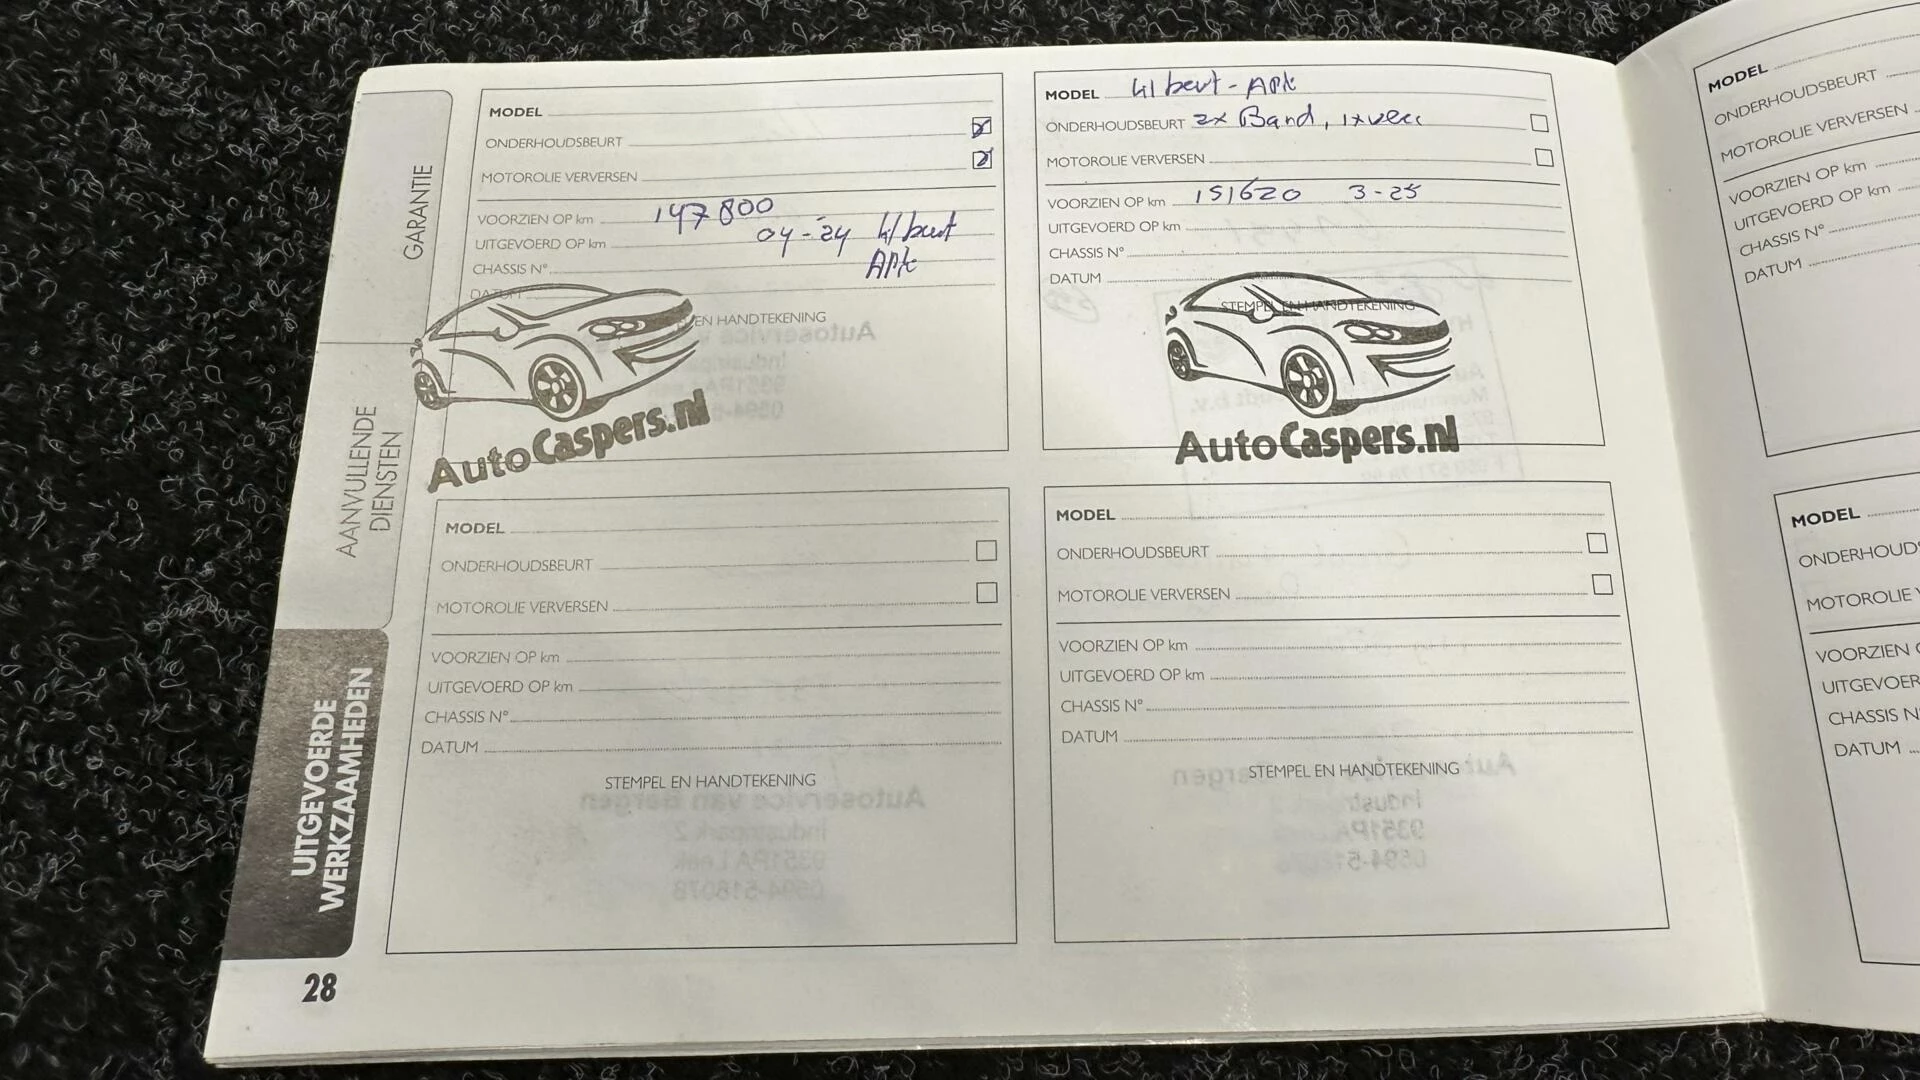 GARANTIE
AANVULLENDE
DIENSTEN
UITGEVOERDE
WERKZAAMHEDEN
28
MODEL
ONDERHOUDSBEURT
MOTOROLIE VERVERSEN
VOORZIEN OP km 147800
UITGEVOERD OP km 04-24 kl beurt
CHASSIS N° APK
DATUM
EN HANDTEKENING
AutoCaspers.nl
MODEL kl beurt - APK
ONDERHOUDSBEURT 2x Band, 1x veer
MOTOROLIE VERVERSEN
VOORZIEN OP km 151620 3-25
UITGEVOERD OP km
CHASSIS N°
DATUM
STEMPEL EN HANDTEKENING
AutoCaspers.nl
MODEL
ONDERHOUDSBEURT
MOTOROLIE VERVERSEN
VOORZIEN OP km
UITGEVOERD OP km
CHASSIS N°
DATUM
STEMPEL EN HANDTEKENING
MODEL
ONDERHOUDSBEURT
MOTOROLIE VERVERSEN
VOORZIEN OP km
UITGEVOERD OP km
CHASSIS N°
DATUM
STEMPEL EN HANDTEKENING
MODEL
ONDERHOUDSBEURT
MOTOROLIE VERVERSEN
VOORZIEN OP km
UITGEVOERD OP km
CHASSIS N°
DATUM
MODEL
ONDERHOUDS
MOTOROLIE
VOORZIEN
UITGEVOER
CHASSIS N
DATUM